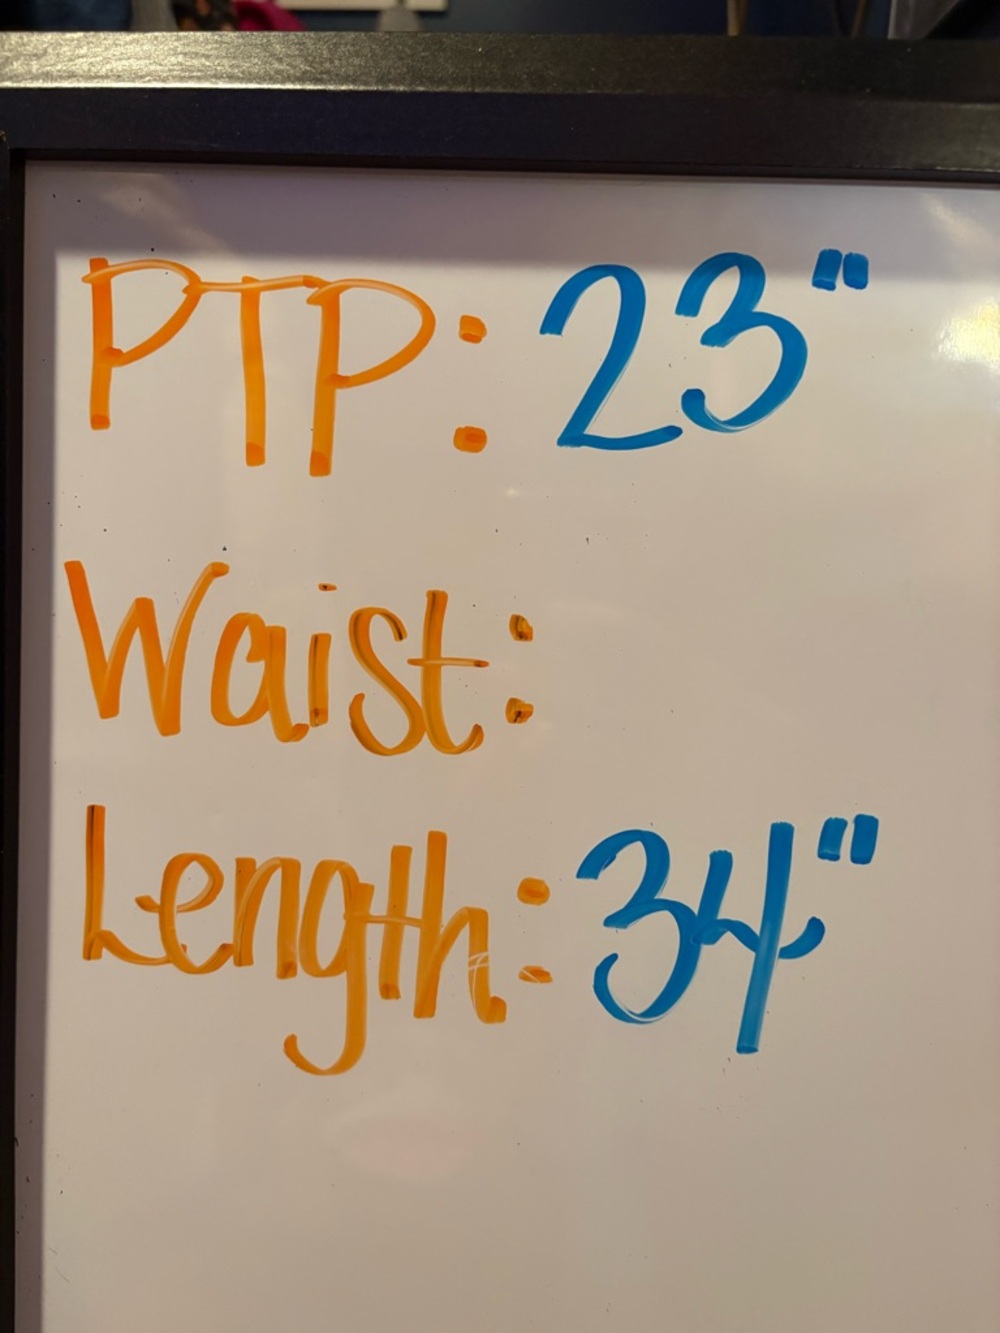 PTP: 23"
Waist:
Length: 34"